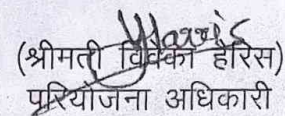 (श्रीमती विवेका हैरिस)
परियोजना अधिकारी